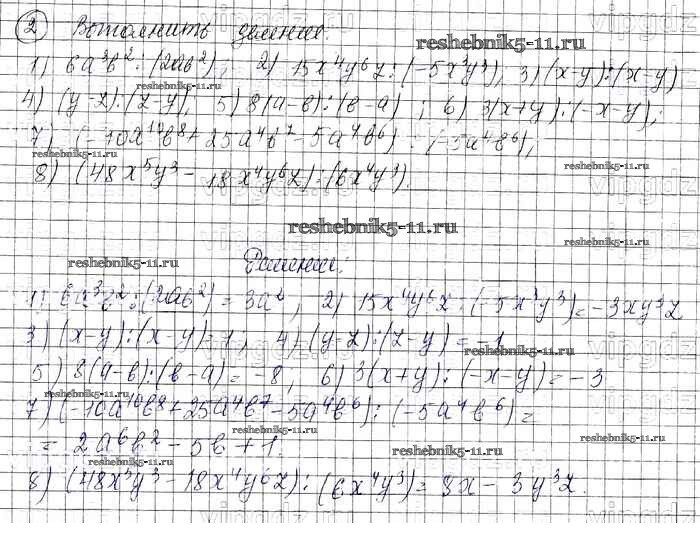 ② Выполнить деление.
reshebnik5-11.ru
1) 6a³b² : (2ab²); 2) 15x⁴y⁶z : (-5x³y³), 3) (x-y) : (x-y)
reshebnik5-11.ru
4) (y-z) : (z-y), 5) 8(a-b) : (b-a) ; 6) 3(x+y) : (-x-y);
7) (-10a¹⁰b⁸ + 25a⁴b⁷ - 5a⁴b⁶) : (-5a⁴b⁶),
reshebnik5-11.ru reshebnik5-11.ru
8) (48x⁵y³ - 18x⁴y⁶z) : (6x⁴y³).
reshebnik5-11.ru
reshebnik5-11.ru
reshebnik5-11.ru Решение:
1) 6a³b² : (2ab²) = 3a², 2) 15x⁴y⁶z : (-5x³y³) = -3xy³z
3) (x-y) : (x-y) = 1, 4) (y-z) : (z-y) = -1
reshebnik5-11.ru
5) 8(a-b) : (b-a) = -8, 6) 3(x+y) : (-x-y) = -3
reshebnik5-11.ru
7) (-10a¹⁰b⁸ + 25a⁴b⁷ - 5a⁴b⁶) : (-5a⁴b⁶) =
reshebnik5-11.ru
= 2a⁶b² - 5b + 1.
reshebnik5-11.ru reshebnik5-11.ru reshebnik5-11.ru
8) (48x⁵y³ - 18x⁴y⁶z) : (6x⁴y³) = 8x - 3y³z.